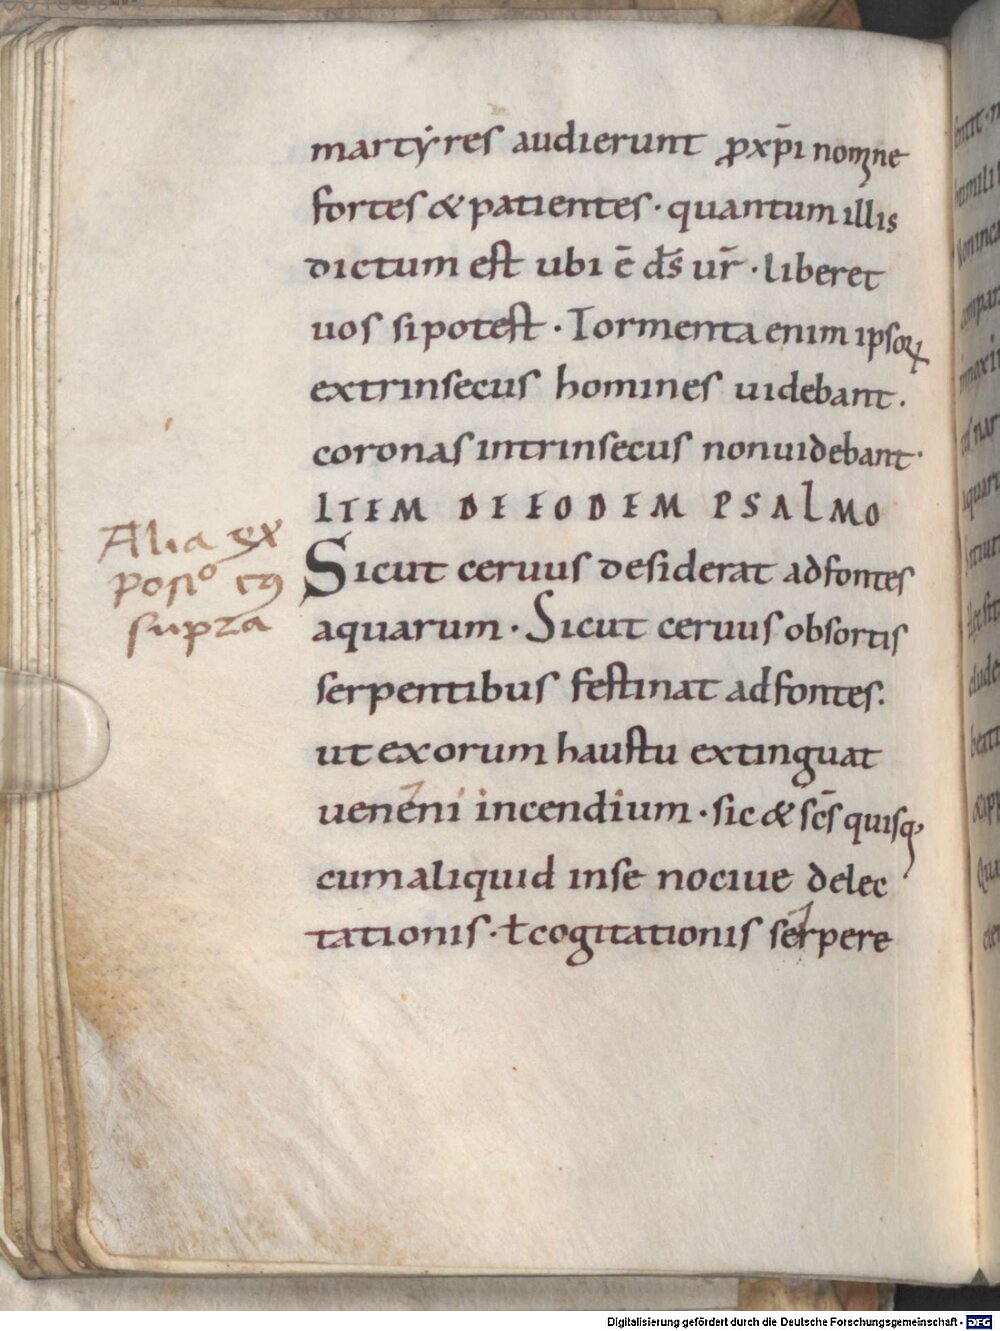 martẏres audierunt ꝓ xp̄i nomine
fortes & patientes · quantum illis
dictum est ubi ē d̄s ur̄ · liberet
uos si potest · Tormenta enim ipsoꝝ
extrinsecus homines uidebant ·
coronas intrinsecus non uidebant ·
ITEM DE EODEM PSALMO
Sicut ceruus desiderat ad fontes
aquarum · Sicut ceruus obsortis
serpentibus festinat ad fontes ·
ut ex orum haustu extinguat
ueneni incendium · sic & sc̄s quisq,
cum aliquid in se nociue delec
tationis · ł cogitationis serpere
Alia ex
posiº
supra
Digitalisierung gefördert durch die Deutsche Forschungsgemeinschaft - DFG